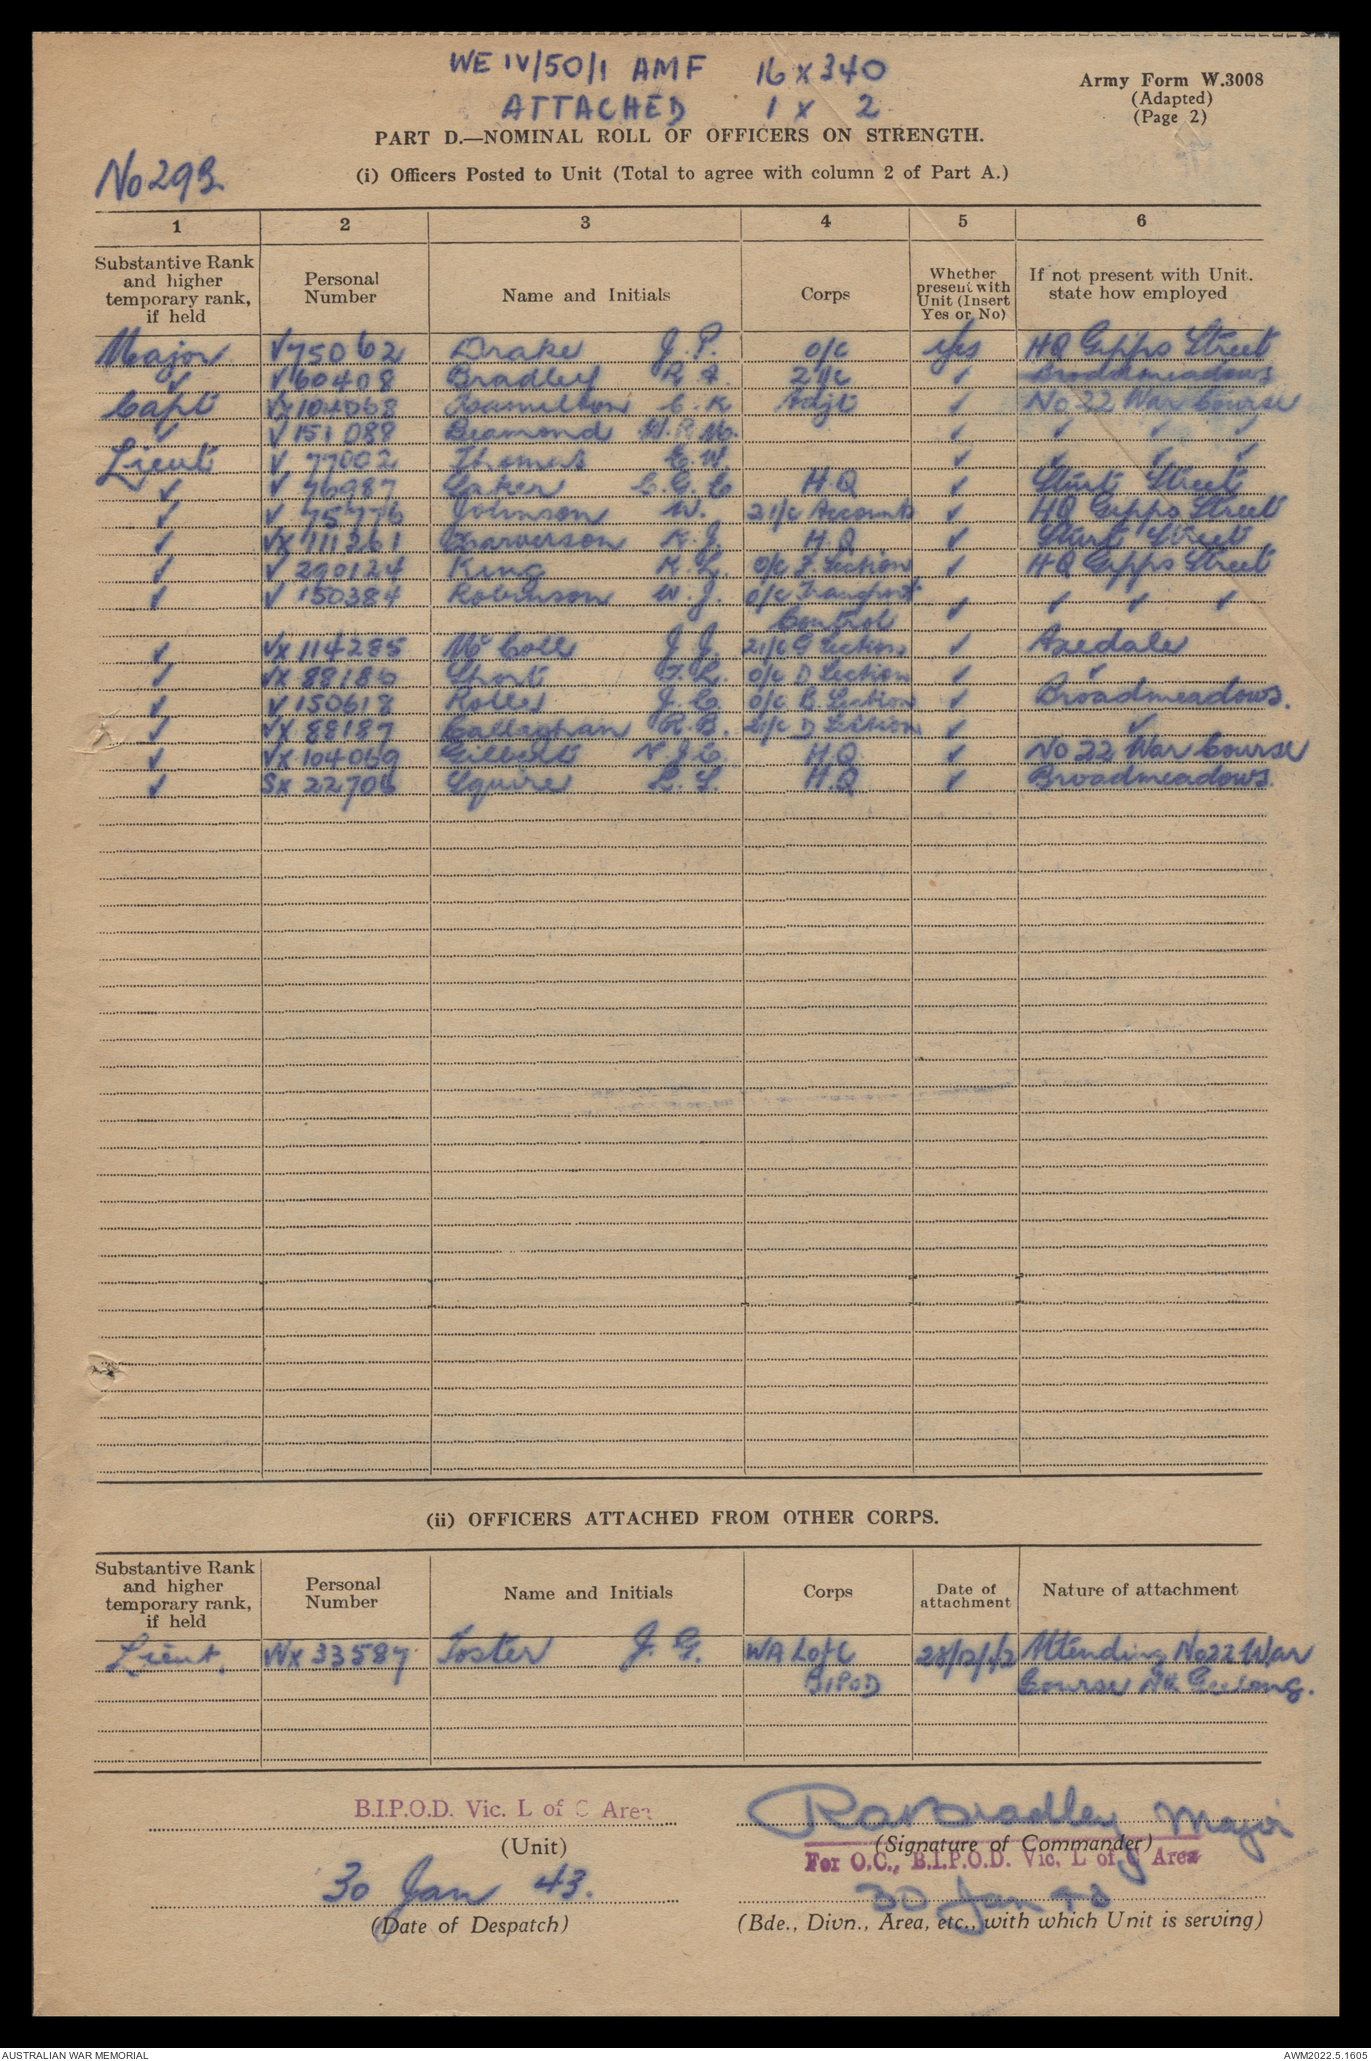 WE IV/50/1 AMF 16 x 340
ATTACHED 1 x 2
Army Form W.3008
(Adapted)
(Page 2)
PART D.—NOMINAL ROLL OF OFFICERS ON STRENGTH.
No 293
(i) Officers Posted to Unit (Total to agree with column 2 of Part A.)
1 2 3 4 5 6
Substantive Rank and higher temporary rank, if held
Personal Number
Name and Initials
Corps
Whether present with Unit (Insert Yes or No)
If not present with Unit. state how employed
Major V75062 Drake J. P. o/c yes HQ Gipps Street
✓ V60408 Bradley R A. 2 i/c ✓ Broadmeadows
Capt VX104068 Hamilton C. K Adjt ✓ No 22 War Course
✓ V151088 Beamond ✓ ✓ ✓ ✓
Lieut V 77002 Thomas E. W. ✓ ✓ ✓ ✓
✓ V 76987 C. E. C H.Q ✓ Sturt Street
✓ V 75776 Johnson W. 2 i/c Accounts ✓ HQ Gipps Street
✓ VX 111361 N. J. H.Q. ✓ Sturt Street
✓ V 290124 King R. L. o/c Section ✓ HQ Gipps Street
✓ V 150384 Robinson W. J. o/c Transport ✓ ✓ ✓ ✓
Control
✓ VX 114285 Mc Coll J. J. 2 i/c G Section ✓ Axedale
✓ VX 88186 Short o/c D Section ✓ ✓
✓ V 150618 J. C. o/c B. Section ✓ Broadmeadows.
✓ VX 88187 Callaghan R. B. 2 i/c D Section ✓ ✓
✓ VX 104069 Gilbert N. J. C. H.Q ✓ No 22 War Course
✓ SX 22706 Squire L. L. H.Q ✓ Broadmeadows.
(ii) OFFICERS ATTACHED FROM OTHER CORPS.
Substantive Rank and higher temporary rank, if held
Personal Number
Name and Initials
Corps
Date of attachment
Nature of attachment
Lieut. WX 33587 Foster J. G. WA L of C Attending No 22 War
BIPOD Course At Geelong.
B.I.P.O.D. Vic. L of C Area
(Unit)
R A Bradley Major
(Signature of Commander)
For O.C., B.I.P.O.D. Vic. L of C Area
30 Jan 43.
(Date of Despatch)
30 Jan 43
(Bde., Divn., Area, etc., with which Unit is serving)
AUSTRALIAN WAR MEMORIAL
AWM2022.5.1605